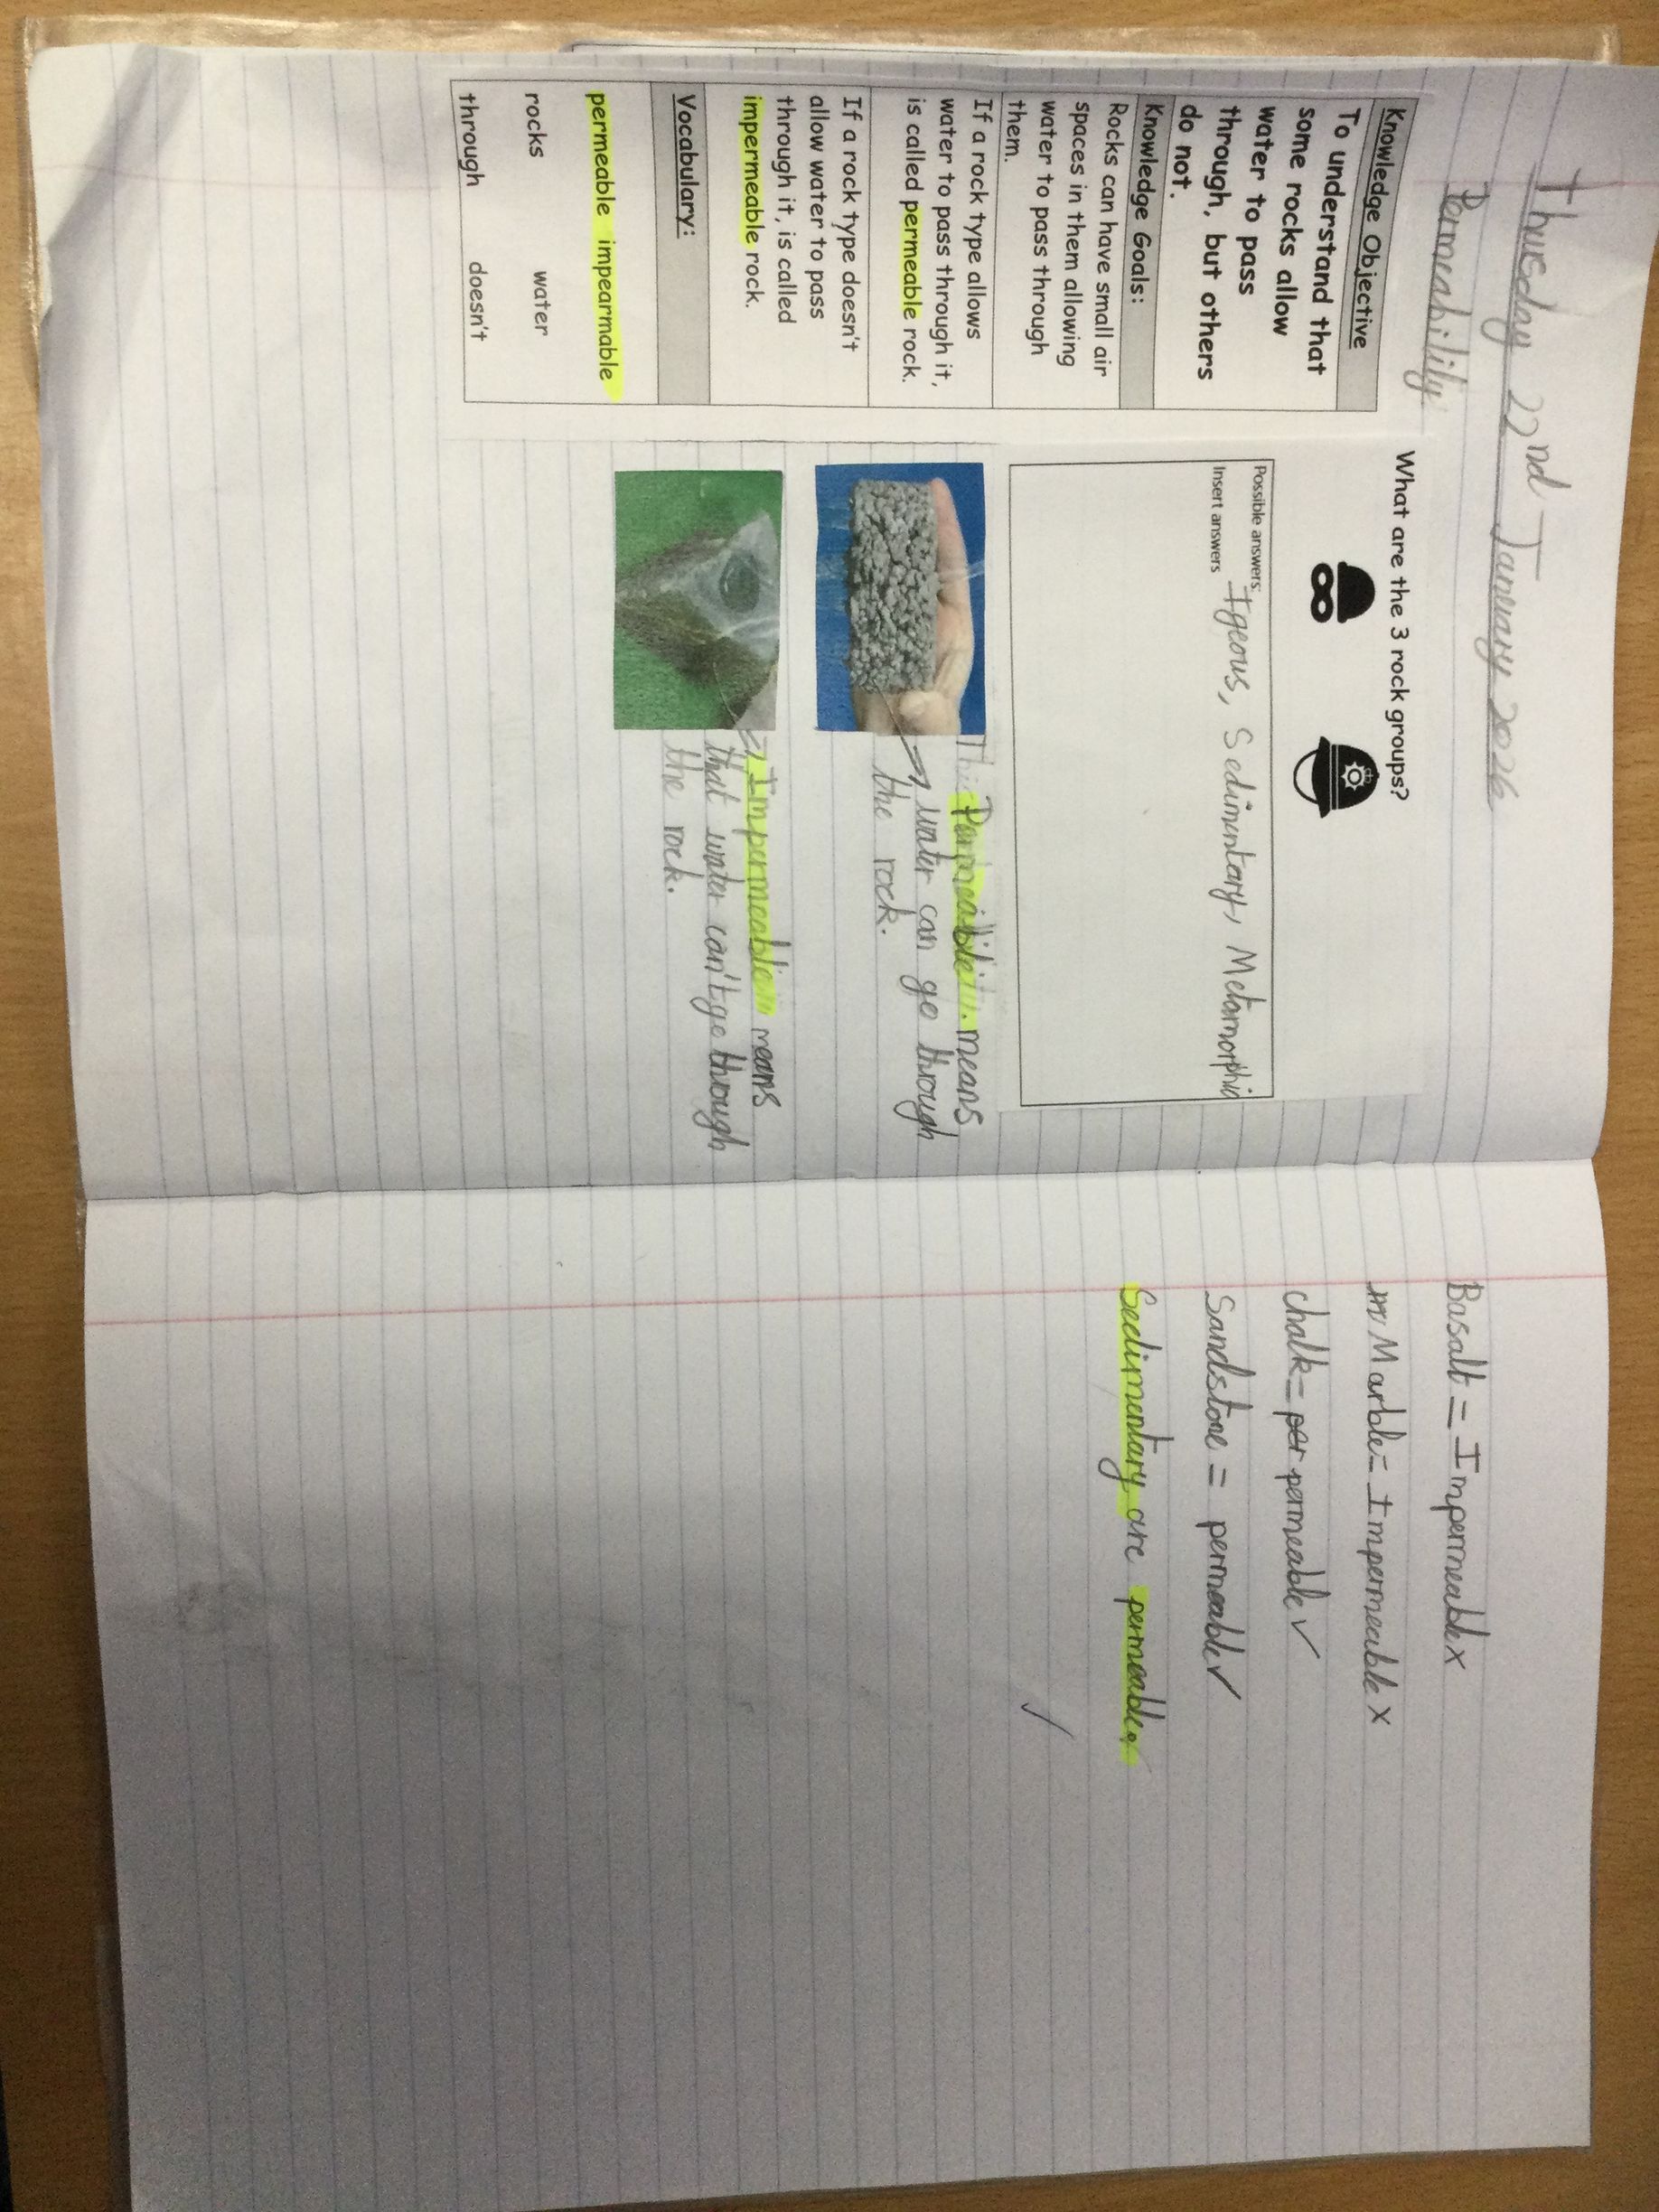 Thursday 22nd January 2026
Permeability
Knowledge Objective
To understand that
some rocks allow
water to pass
through, but others
do not.
Knowledge Goals:
Rocks can have small air
spaces in them allowing
water to pass through
them.
If a rock type allows
water to pass through it,
is called permeable rock.
If a rock type doesn't
allow water to pass
through it, is called
impermeable rock.
Vocabulary:
permeable impearmable
rocks water
through doesn't
What are the 3 rock groups?
Possible answers:
Insert answers
Igeous, Sedimentary, Metamorphic
means
water can go through
the rock.
means
that water can't go through
the rock.
Basalt = Impermeable x
m Marble = Impermeable x
chalk = per permeable ✓
Sandstone = permeable ✓
Sedimentary are permeable.
✓